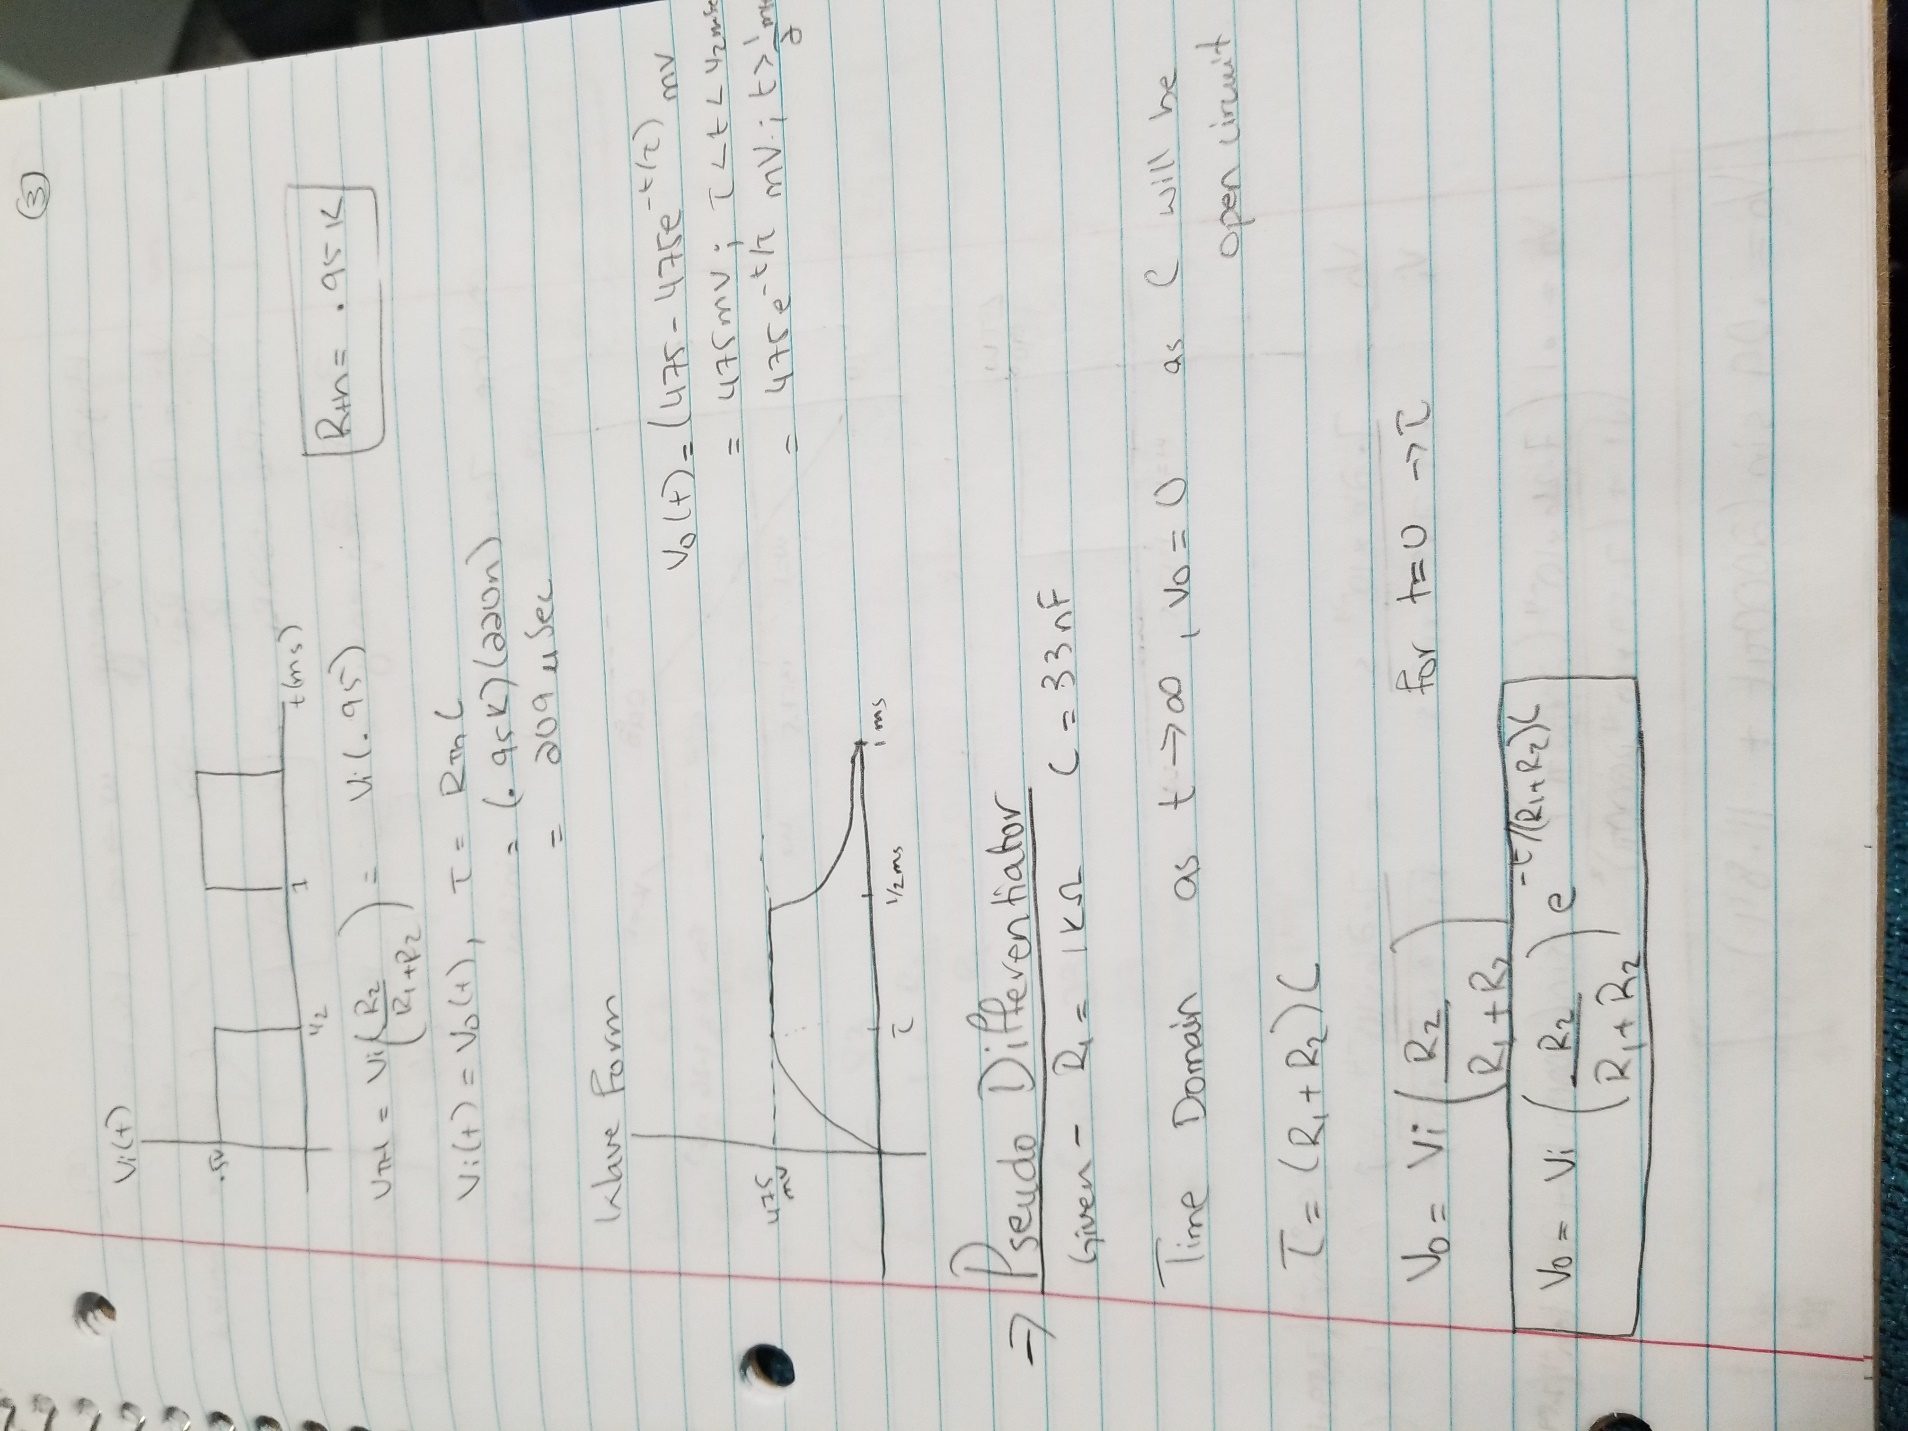 ③
Vi(t)
.5V
1/2
1
t(ms)
Rth = .95K
VTH = Vi(R2/(R1+R2)) = Vi(.95)
Vi(t) = Vo(t), τ = RTH C
= (.95K)(220n)
= 209 uSec
Wave Form
Vo(t) = (475 - 475e^-t/τ) mV
= 475mV; τ < t < 1/2msec
= 475e^-t/τ mV; t > 1/2
475 mV
τ
1/2ms
1ms
→ Pseudo Differentiator
Given - R1 = 1KΩ C = 33nF
Time Domain as t → ∞, Vo = 0 as C will be
open circuit
τ = (R1 + R2)C
Vo = Vi (R2/(R1 + R2)) for t=0 → τ
Vo = Vi (R2/(R1 + R2)) e^-t/(R1+R2)C